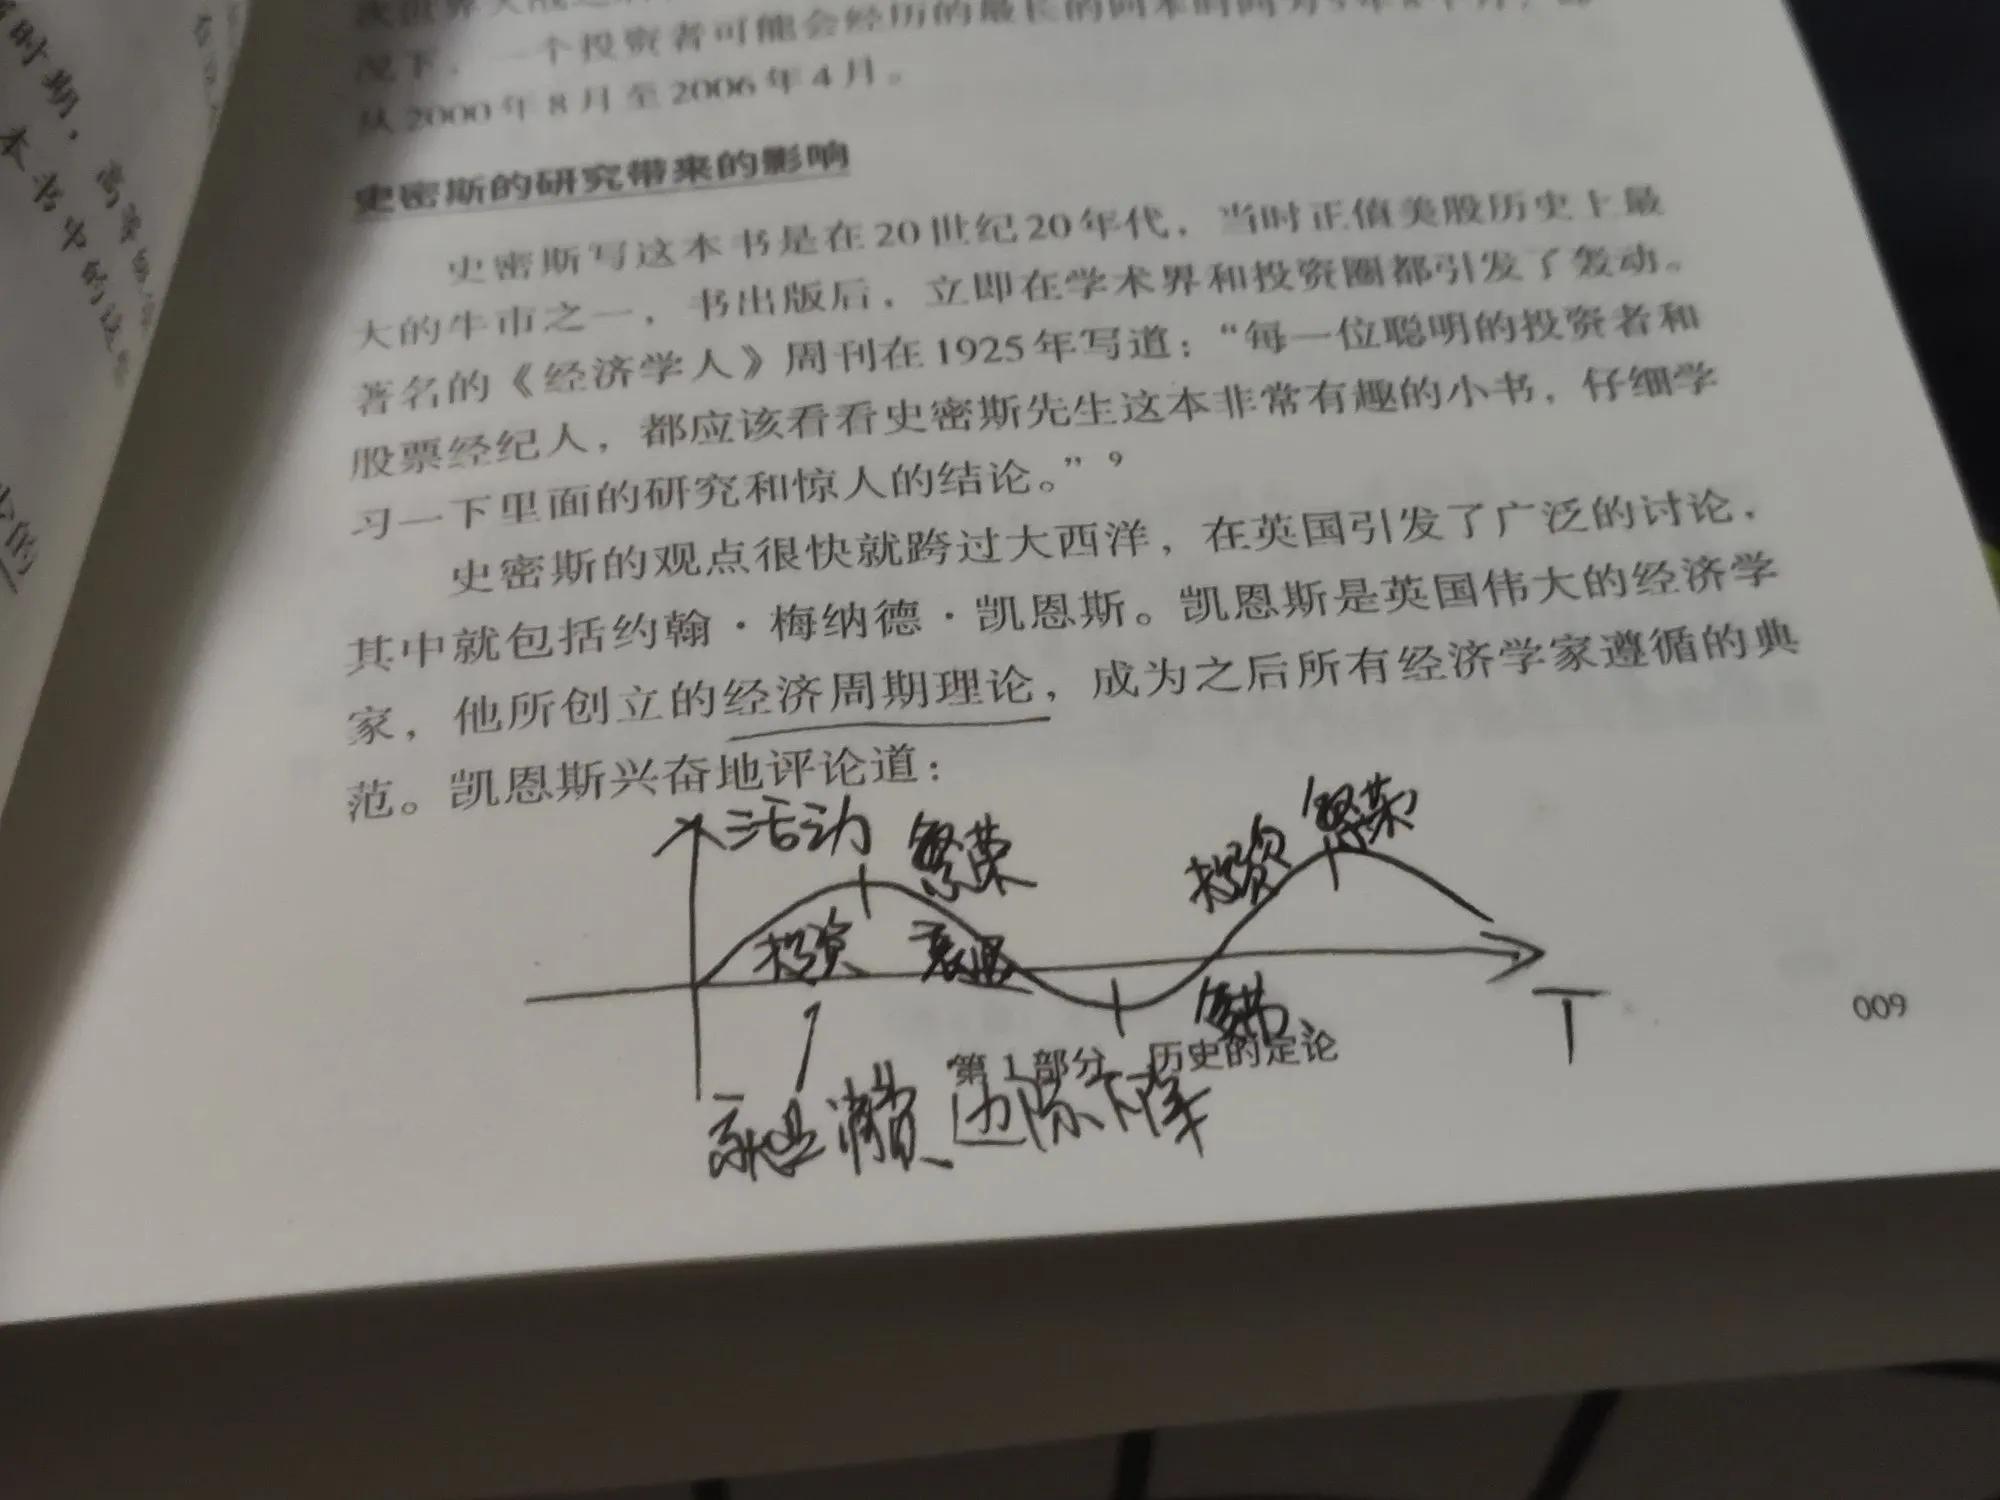 况下，一个投资者可能会经历的最长的回本时间为5年8个月，
从2000年8月至2006年4月。
史密斯的研究带来的影响
史密斯写这本书是在20世纪20年代，当时正值美股历史上最
大的牛市之一，书出版后，立即在学术界和投资圈都引发了轰动。
著名的《经济学人》周刊在1925年写道：“每一位聪明的投资者和
股票经纪人，都应该看看史密斯先生这本非常有趣的小书，仔细学
习一下里面的研究和惊人的结论。”9
史密斯的观点很快就跨过大西洋，在英国引发了广泛的讨论，
其中就包括约翰·梅纳德·凯恩斯。凯恩斯是英国伟大的经济学
家，他所创立的经济周期理论，成为之后所有经济学家遵循的典
范。凯恩斯兴奋地评论道：
活动 繁荣 投资 繁荣
投资 衰退
T
009
第1部分 历史的定论
消费 边际下降